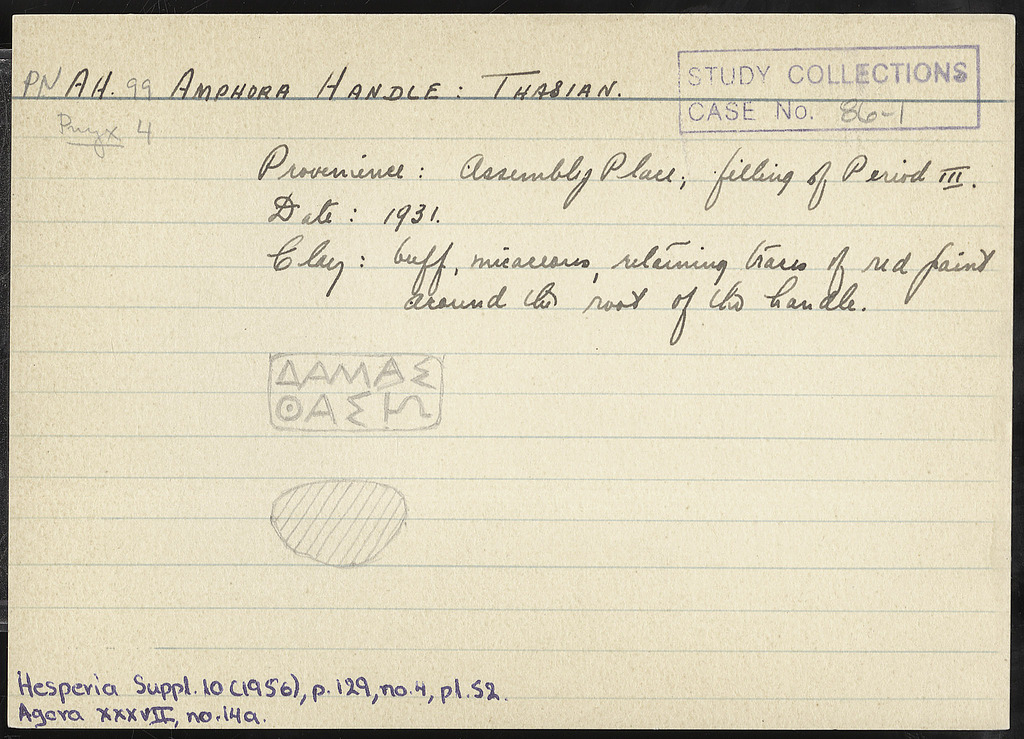 PN AH. 99 AMPHORA HANDLE: THASIAN.
STUDY COLLECTIONS
CASE No. 86-1
Pnyx 4
Provenience: Assembly Place; filling of Period III.
Date: 1931.
Clay: buff, micaceous, retaining traces of red paint
around the root of the handle.
ΔΑΜΑΣ
ΘΑΣΙΩ
Hesperia Suppl. 10 (1956), p. 129, no. 4, pl. 52.
Agora XXXVII, no. 14a.